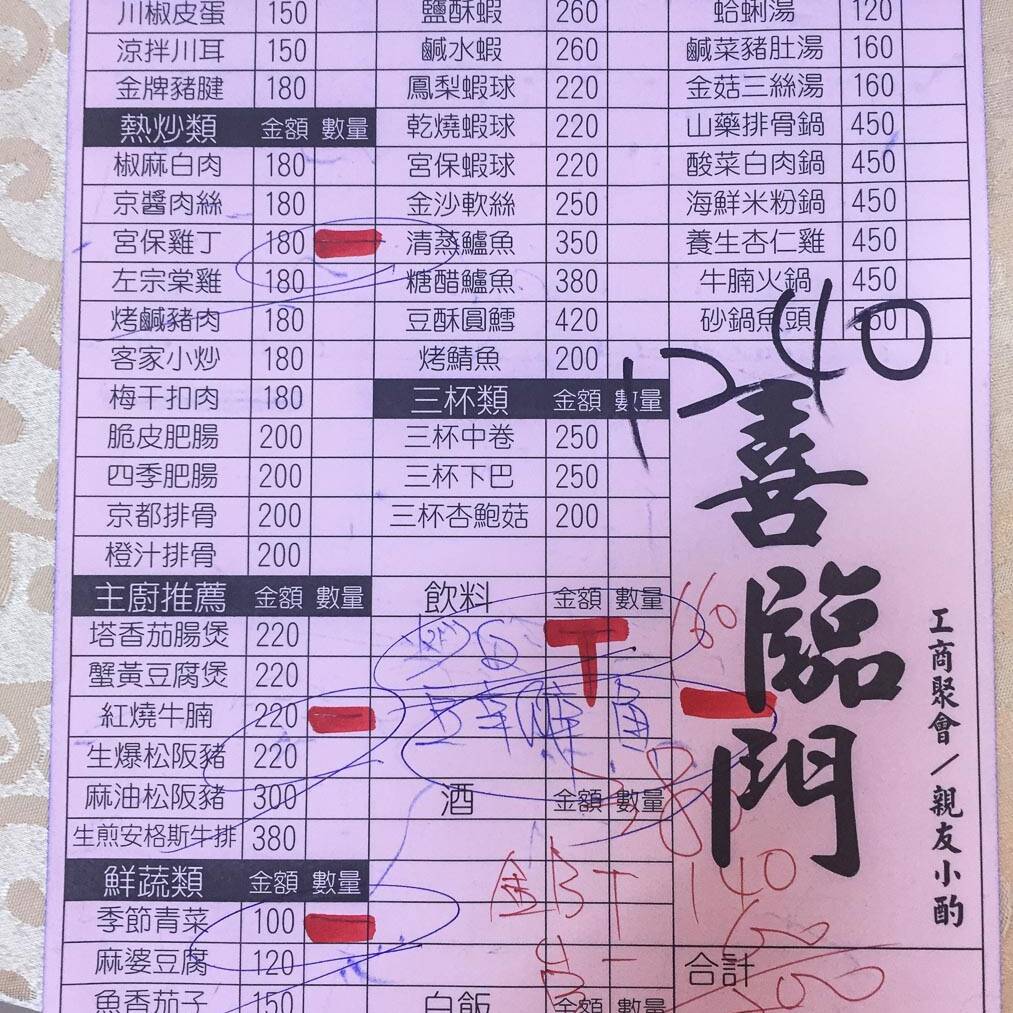 川椒皮蛋 150
涼拌川耳 150
金牌豬腱 180
熱炒類 金額 數量
椒麻白肉 180
京醬肉絲 180
宮保雞丁 180
左宗棠雞 180
烤鹹豬肉 180
客家小炒 180
梅干扣肉 180
脆皮肥腸 200
四季肥腸 200
京都排骨 200
橙汁排骨 200
主廚推薦 金額 數量
塔香茄腸煲 220
蟹黃豆腐煲 220
紅燒牛腩 220
生爆松阪豬 220
麻油松阪豬 300
生煎安格斯牛排 380
鮮蔬類 金額 數量
季節青菜 100
麻婆豆腐 120
魚香茄子 150
鹽酥蝦 260
鹹水蝦 260
鳳梨蝦球 220
乾燒蝦球 220
宮保蝦球 220
金沙軟絲 250
清蒸鱸魚 350
糖醋鱸魚 380
豆酥圓鱈 420
烤鯖魚 200
三杯類 金額 數量
三杯中卷 250
三杯下巴 250
三杯杏鮑菇 200
飲料 金額 數量
160
酒 金額 數量
380
140
白飯 金額 數量
蛤蜊湯 120
鹹菜豬肚湯 160
金菇三絲湯 160
山藥排骨鍋 450
酸菜白肉鍋 450
海鮮米粉鍋 450
養生杏仁雞 450
牛腩火鍋 450
砂鍋魚頭
1240
喜臨門
工商聚會／親友小酌
合計